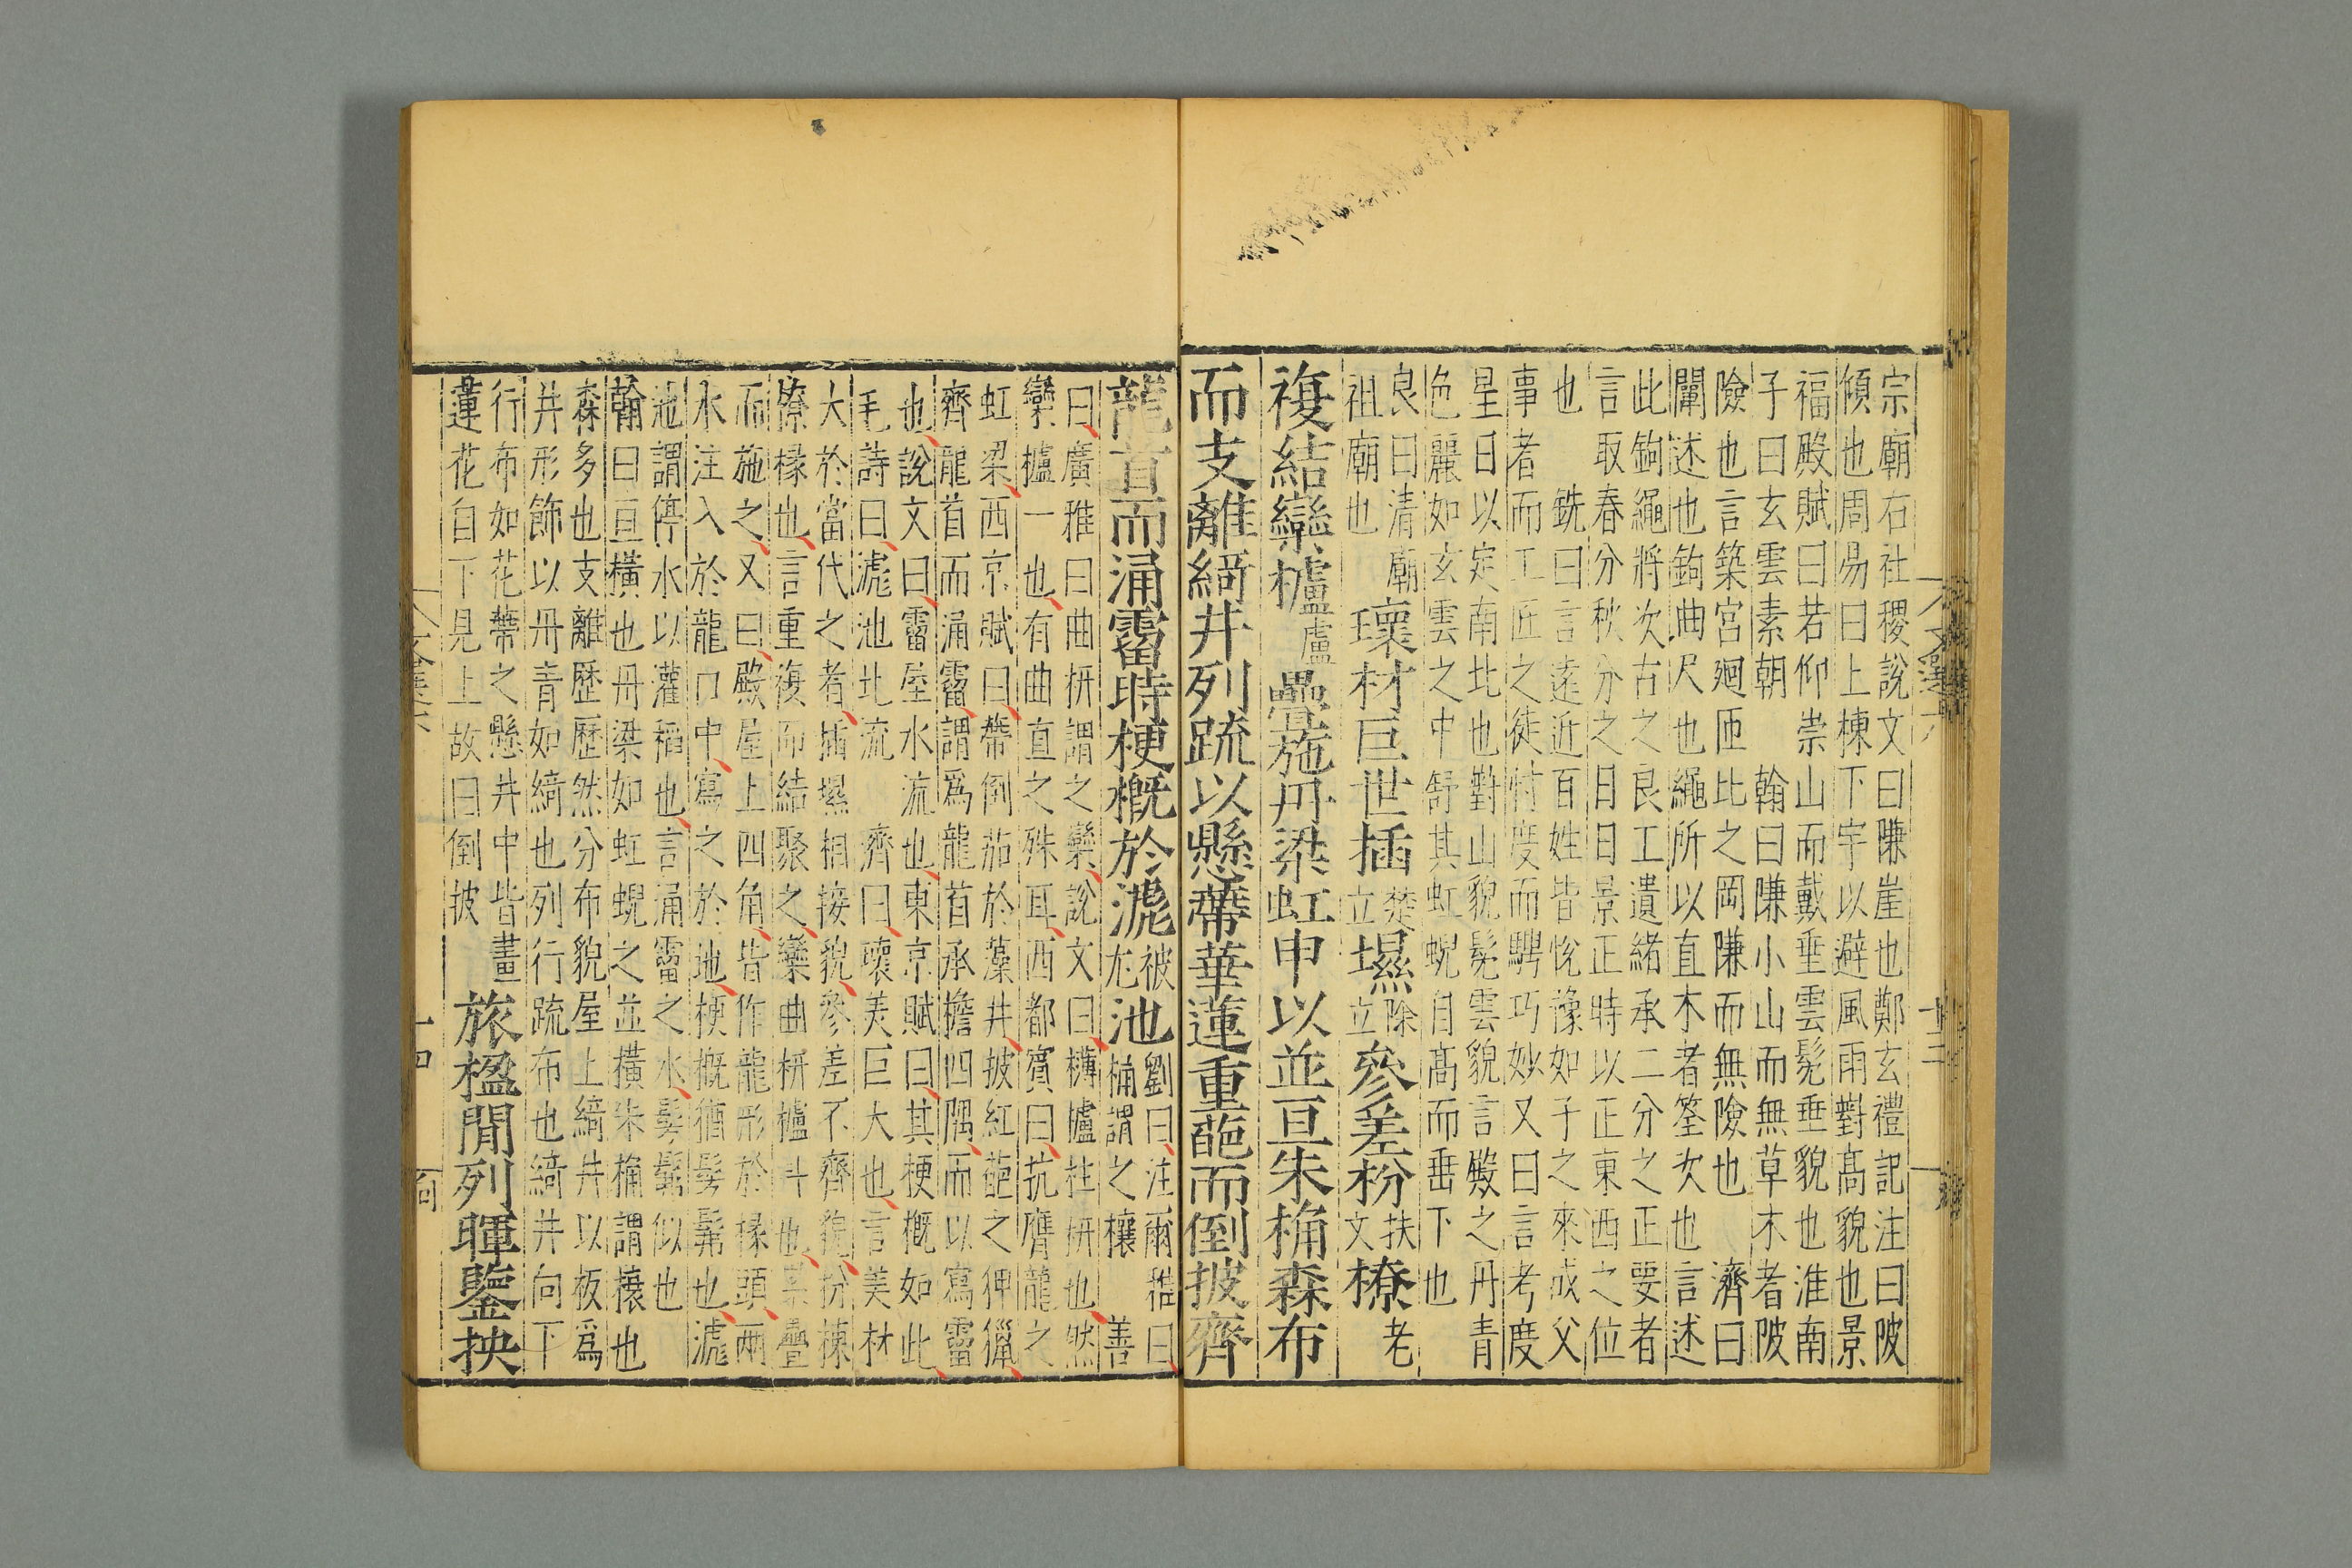 宗廟右社稷說文曰隒崖也鄭玄禮記注曰陂
傾也周易曰上棟下宇以避風雨對髙貌也景
福殿賦曰若仰崇山而戴垂雲髧垂貌也淮南
子曰玄雲素朝 翰曰隒小山而無草木者陂
險也言築宮廻匝比之岡隒而無險也 濟曰
闡述也鉤曲尺也繩所以直木者筌次也言述
此鉤繩將次古之良工遺緒承二分之正要者
言取春分秋分之日日景正時以正東西之位
也 銑曰言遠近百姓皆悅豫如子之來成父
事者而工匠之徒忖度而騁巧妙又曰言考度
星日以定南北也對山貌髧雲貌言殿之丹青
色麗如玄雲之中舒其虹蜺自髙而垂下也
良曰清廟
祖廟也
瓌材巨世插
楚
立
㙷
除
立
參差枌
扶
文
橑
老
複結欒櫨
盧
疊施丹梁虹申以並亘朱桷森布
而支離綺井列疏以懸蔕華蓮重葩而倒披齊
龍首而涌霤時梗概於滮
被
尨
池
劉曰注爾雅曰
桷謂之榱 善
曰廣雅曰曲枅謂之欒說文曰欂櫨柱枅也然
欒櫨一也有曲直之殊耳西都賓曰抗應龍之
虹梁西京賦曰蔕倒茄於藻井披紅葩之狎獵
齊龍首而涌霤謂爲龍首承檐四隅而以寫霤
也說文曰霤屋水流也東京賦曰其梗概如此
毛詩曰滮池北流 濟曰瓌美巨大也言美材
大於當代之者插㙷相接貌參差不齊貌枌棟
橑椽也言重複而結聚之欒曲枅櫨斗也疊
而施之又曰殿屋上四角皆作龍形於椽頭兩
水注入於龍口中寫之於地梗概猶髣髴也滮
池謂停水以灌稻也言涌霤之水髣髴似也
翰曰亘橫也丹梁如虹蜺之並橫朱桷謂榱也
森多也支離歷歷然分布貌屋上綺井以板爲
井形飾以丹青如綺也列行疏布也綺井向下
行布如花蔕之懸井中皆畫
蓮花自下見上故曰倒披
旅楹閒列暉鑒抰